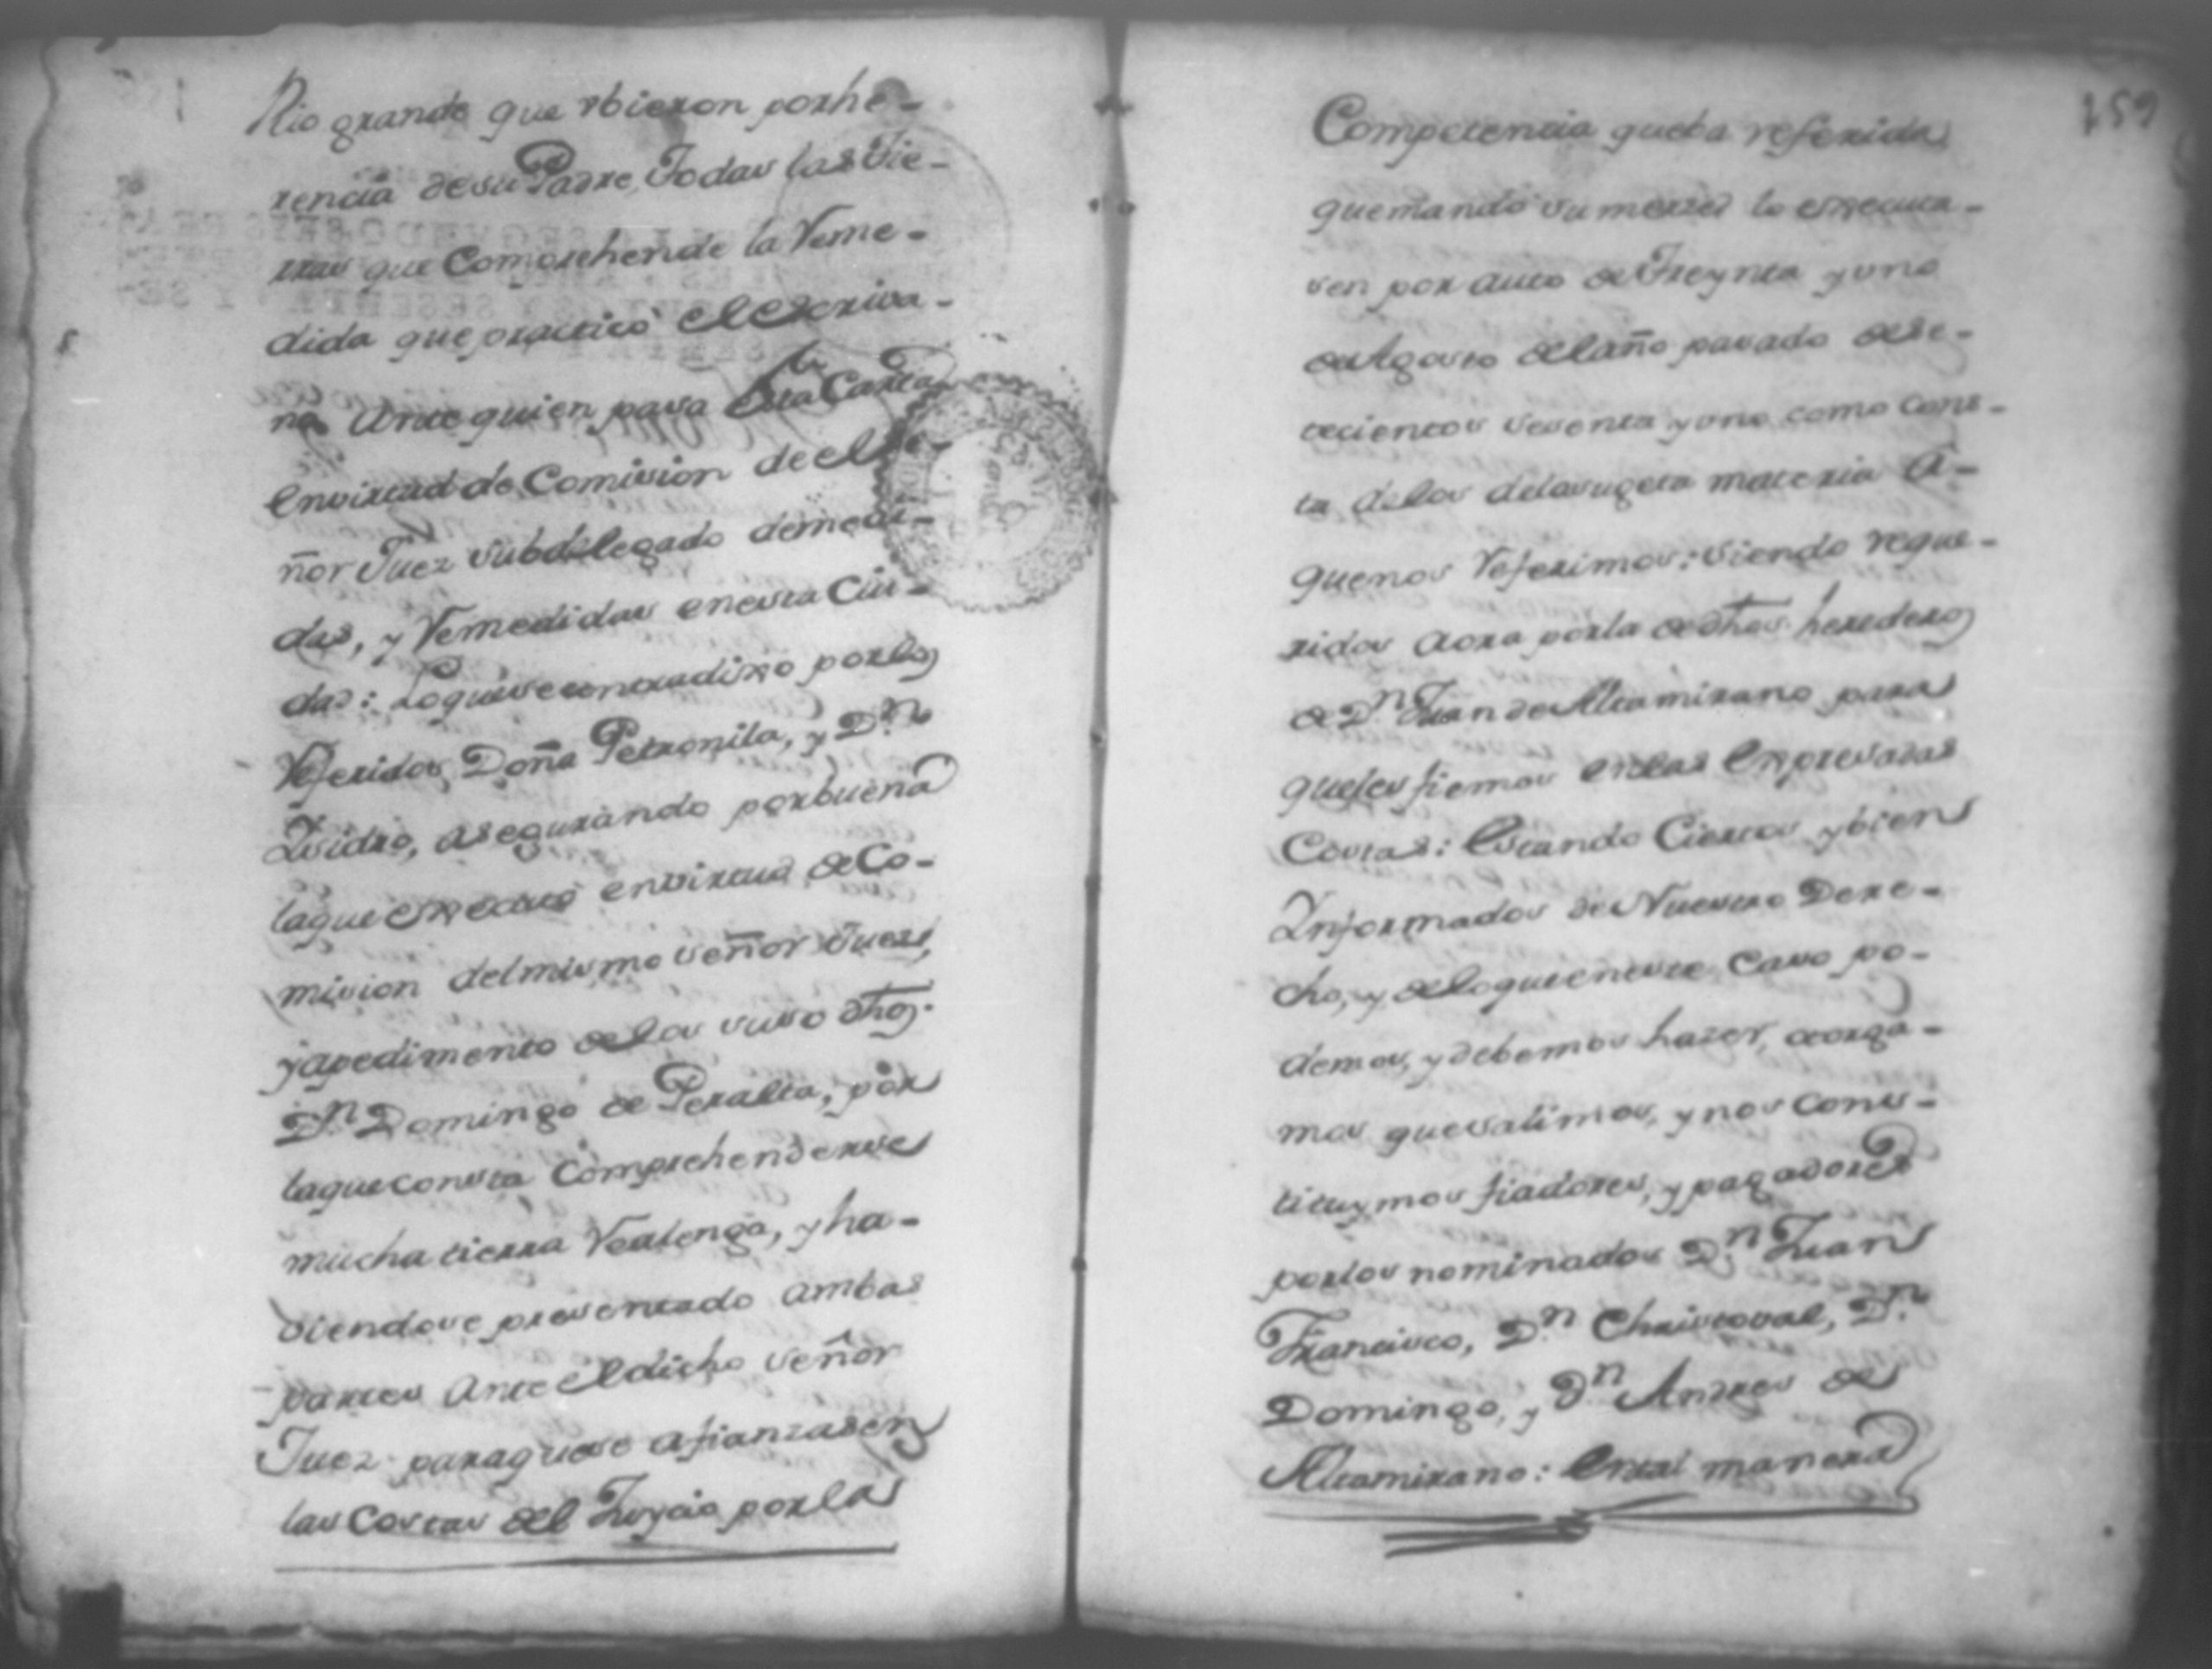 Rio grande que vbieron porhe-
rencia desu Padre, Todas las tie-
rras que Comprehende la Reme-
dida que practicó el Escriva-
no Ante quien pasa esta Carta
envirtud de Comision de el Se-
ñor Juez subdelegado demedi-
das, y Remedidas enesta Ciu-
dad: Loquese contradixo porlos
Referidos Doña Petronila, y D.n
Ysidro, asegurando porbuena
laque executó envirtud de Co-
mision delmismo señor Juez,
yapedimento delos suso dhos.
D.n Domingo de Peralta, por
laque consta Comprehenderse
mucha tierra Realenga, y ha-
viendose presentado ambas
partes Ante eldicho señor
Juez paraquese afianzasen
las costas del Juycio por la
159
Competencia queba referida
quemandó su merced lo executa-
sen por auto de Treynta y uno
de Agosto delaño pasado de Se-
tecientos sesenta y uno como cons-
ta delos delasugeta materia A-
quenos Referimos: siendo reque-
ridos aora porla de dhos. herederos
de D.n Juan de Altamirano para
queles fiemos enlas expresadas
Costas: estando Ciertos y bien
Ynformados de Nuestro Dere-
cho, y deloque eneste Caso po-
demos, y debemos hazer, otorga-
mos quesalimos, y nos cons-
tituymos fiadores, y pagadores
porlos nominados D.n Juan
Francisco, D.n Christoval, D.n
Domingo, y D.n Andres de
Altamirano: Ental manera